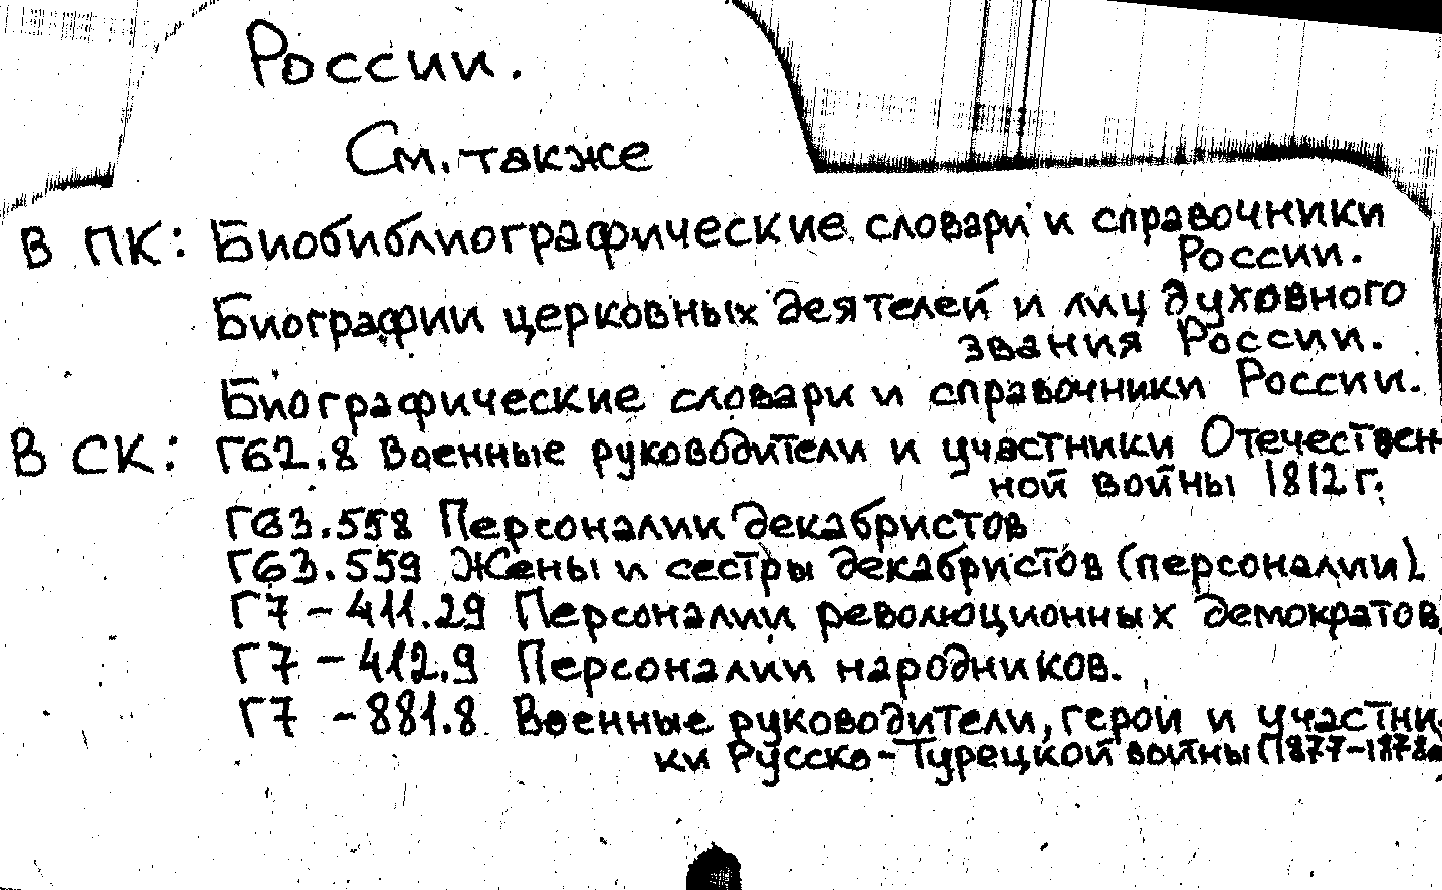 России.
См. также
В ПК: Биобиблиографические словари и справочники
России.
Биографии церковных деятелей и лиц духовного
звания России.
Биографические словари и справочники России.
В СК: Г62.8 Военные руководители и участники Отечествен
ной войны 1812 г.
Г63.558 Персоналии декабристов
Г63.559 Жены и сестры декабристов (персоналии).
Г7-411.29 Персоналии революционных демократов
Г7-412.9 Персоналии народников.
Г7-881.8 Военные руководители, герои и участни
ки Русско-Турецкой войны (1877-1878